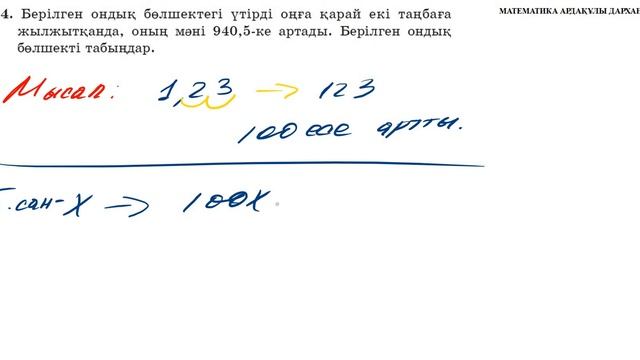 МАТЕМАТИКА АРДАҚҰЛЫ ДАРХАН
4. Берілген ондық бөлшектегі үтірді оңға қарай екі таңбаға
жылжытқанда, оның мәні 940,5-ке артады. Берілген ондық
бөлшекті табыңдар.
Мысал: 1,23 → 123
100 есе артты.
Т.сан-х → 100х